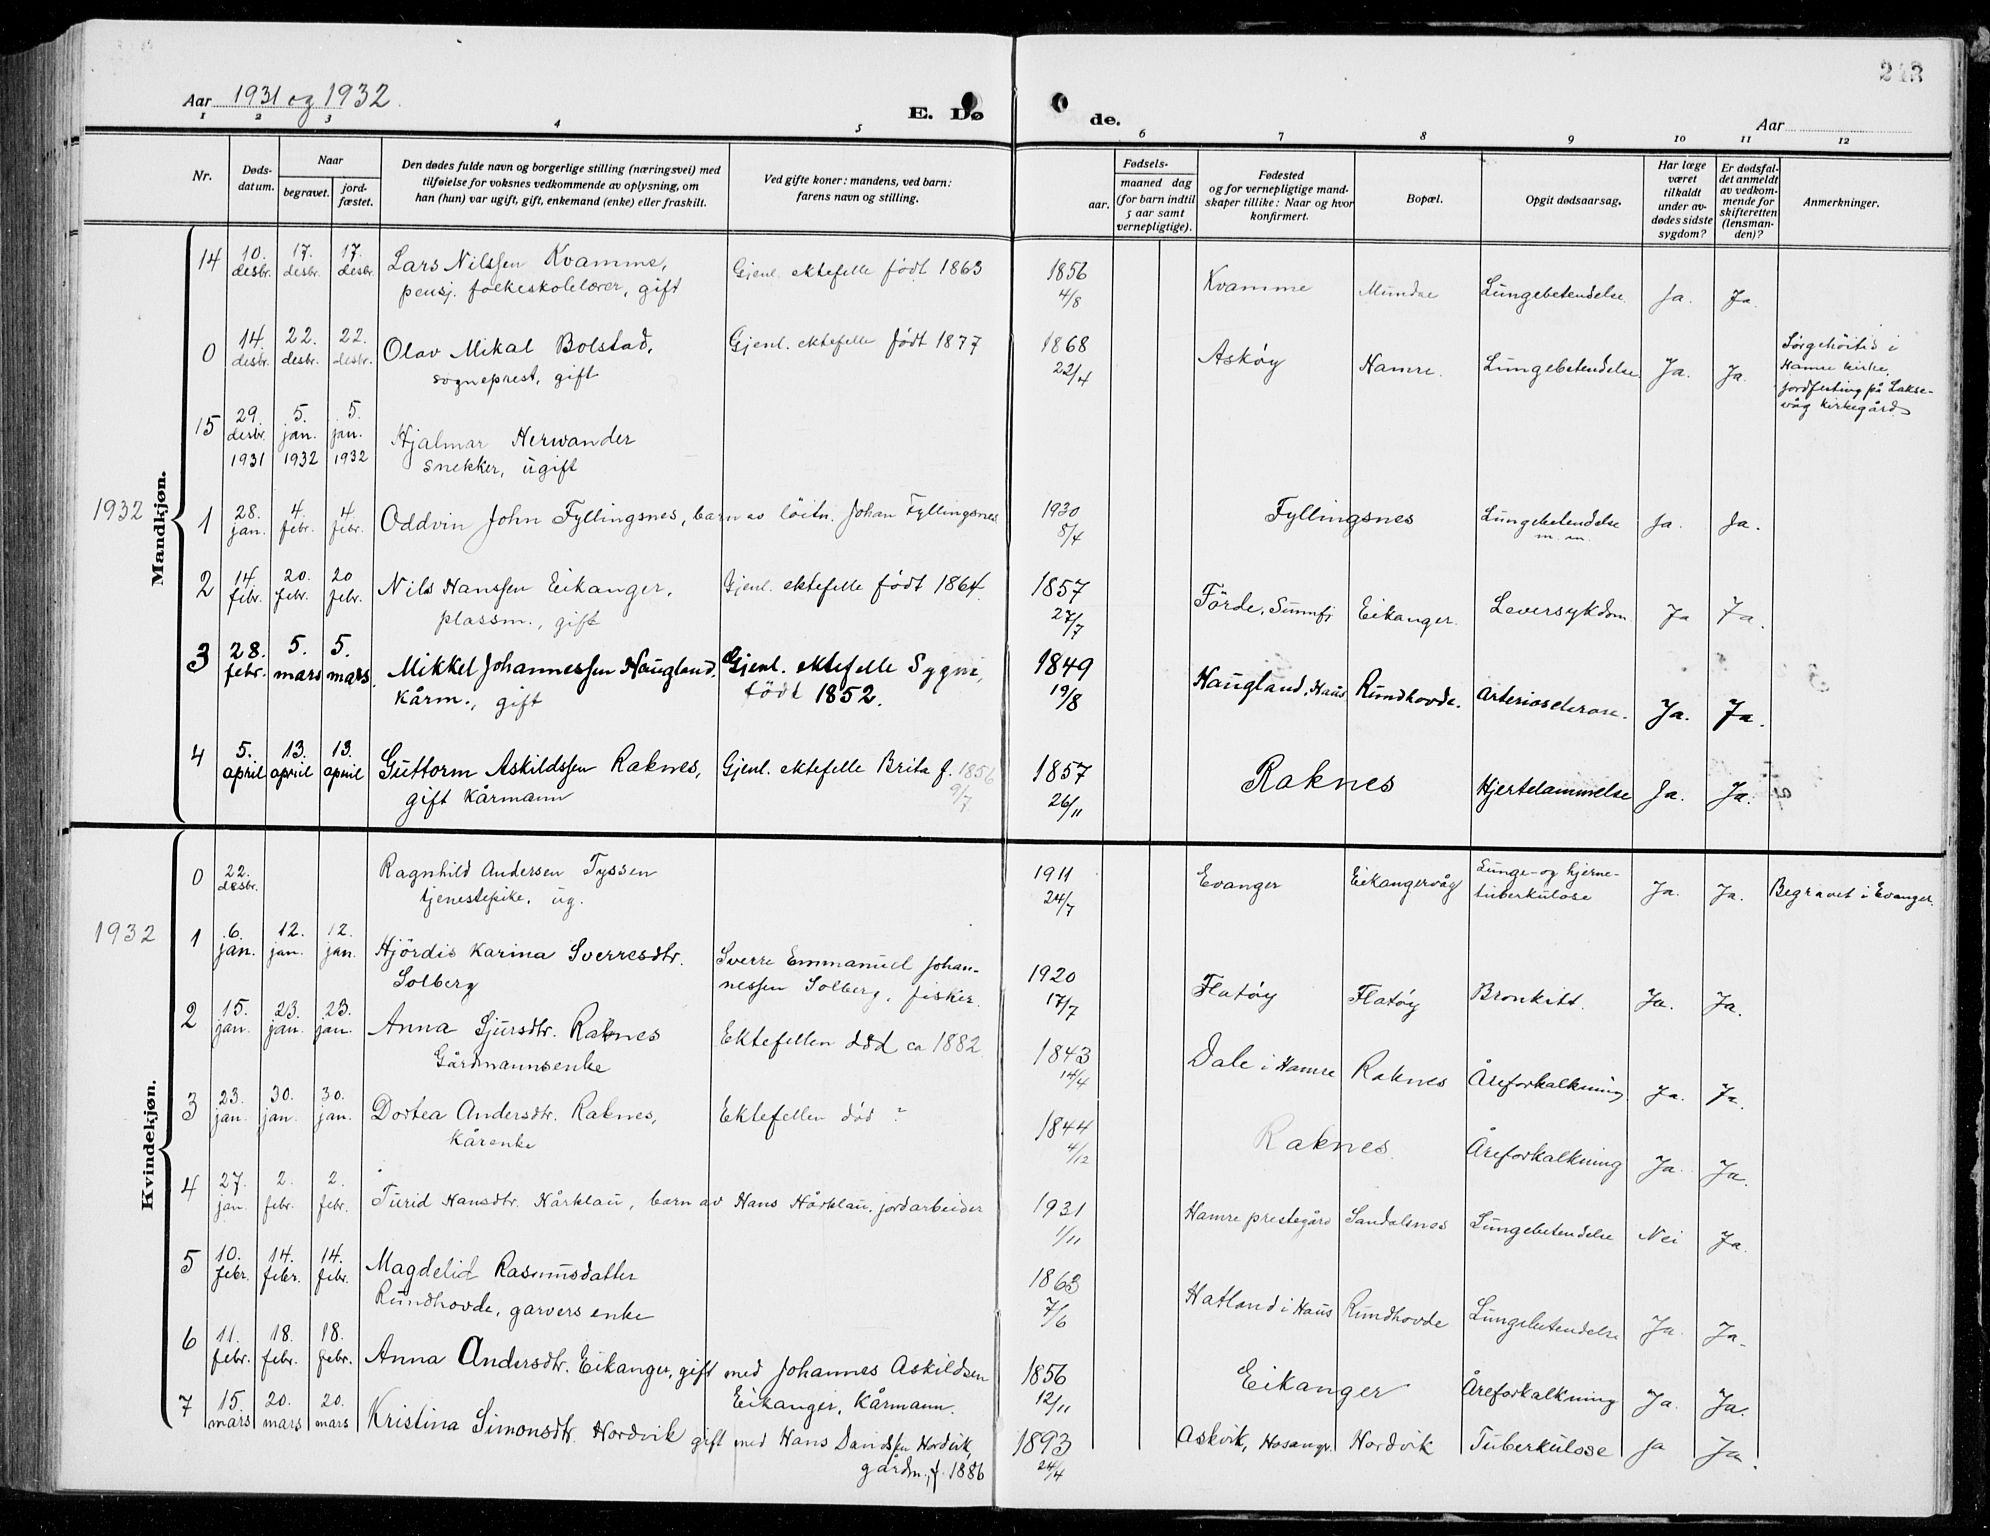 243
Aar 1931 og 1932.
E. Dø de.
Aar
1 2 3 4 5 6 7 8 9 10 11 12
Nr.
Døds-
datum.
Naar
begravet.
jord-
fæstet.
Den dødes fulde navn og borgerlige stilling (næringsvei) med
tilføielse for voksnes vedkommende av oplysning, om
han (hun) var ugift, gift, enkemand (enke) eller fraskilt.
Ved gifte koner: mandens, ved barn:
farens navn og stilling.
Fødsels-
aar.
maaned dag
(for barn indtil
5 aar samt
vernepligtige).
Fødested
og for vernepligtige mand-
skaper tillike: Naar og hvor
konfirmert.
Bopæl.
Opgit dødsaarsag.
Har læge
været
tilkaldt
under av-
dødes sidste
sygdom?
Er dødsfal-
det anmeldt
av vedkom-
mende for
skifteretten
(lensman-
den)?
Anmerkninger.
Mandkjøn.
14 10. desbr. 17. desbr. 17. desbr. Lars Nilssen Kvamme, Gjenl. ektefelle født 1863 1856
pensj. folkeskolelærer, gift 4/8 Kvamme Mundae Lungebetendelse Ja. Ja.
0 14. desbr. 22. desbr. 22. desbr. Olav Mikal Bolstad, Gjenl. ektefelle født 1877 1868
sogneprest, gift 22/4 Askøy Hamre. Lungebetendelse Ja. Ja.
Sørgehøitid i
Hamre kirke,
jordfesting på Lakse-
våg kirkegård
15 29. desbr. 1931 5. jan. 1932 5. jan. 1932 Hjalmar Herwander
snekker, ugift
1932
1 28. jan. 4. febr. 4. febr. Oddvin John Fyllingsnes, barn av løitn. Johan Fyllingsnes 1930
5/4 Fyllingsnes Lungebetendelse Ja. Ja.
m. m.
2 14. febr. 20. febr. 20 febr. Nils Hanssen Eikanger, Gjenl. ektefelle født 1864. 1857
plassm., gift 27/7 Førde, Sunnfj. Eikanger. Leversykdom Ja Ja.
3 28. febr. 5. mars 5. mars. Mikkel Johannessen Haugland, Gjenl. ektefelle Sygni, 1849
kårm., gift født 1852. 19/8 Haugland, Haus Rundhovde. Arteriosclerose. Ja. Ja.
4 5. april 13. april 13. april Guttorm Askildssen Raknes, Gjenl. ektefelle Brita f. 1856 1857
gift kårmann 9/7 26/11 Raknes Hjertelammelse Ja. Ja.
Kvindekjøn.
0 22. desbr. Ragnhild Andersen Tyssen 1911
tjenestepike, ug. 24/7 Evanger Eikangervåg Lunge- og hjerne-
tuberkulose Ja. Ja. Begravet i Evanger.
1932
1 6. jan. 12. jan. 12. jan. Hjördis Karina Sverresdtr. Sverre Emmanuel Johan- 1920
Solberg nessen Solberg, fisker. 17/7 Flatøy Flatøy Bronkitt. Ja. Ja.
2 15. jan. 23. jan. 23. jan. Anna Sjursdtr. Raknes Ektefellen död ca 1882 1843
Gårdmannsenke 14/4 Dale i Hamre Raknes Åreforkalkning Ja. Ja.
3 23. jan. 30. jan. 30. jan. Dortea Andersdtr. Raknes, Ektefellen död ? 1844
Kårenke 4/12 Raknes. Åreforkalkning Ja. Ja.
4 27. jan. 2. febr. 2. febr. Turid Hansdtr. Hårklau, barn av Hans Hårklau, jordarbeider 1931
1/11 Hamre prestegård Sandalsnes Lungebetendelse Nei Ja.
5 10. febr. 14. febr. 14. febr. Magdelid Rasmusdatter 1863
Rundhovde, garvers enke 7/6 Hatland i Haus Rundhovde Lungebetendelse Ja. Ja.
6 11. febr. 18. febr. 18. febr. Anna Andersdtr. Eikanger, gift med Johannes Askildsen 1856
Eikanger, Kårmann. 12/11 Eikanger Åreforkalkning Ja. Ja.
7 15. mars 20. mars 20. mars Kristina Simonsdtr. Nordvik gift med Hans Danssen Nordvik, 1893
gårdm., f. 1886 24/4 Askvik, Hosangr. Nordvik Tuberkulose Ja Ja.